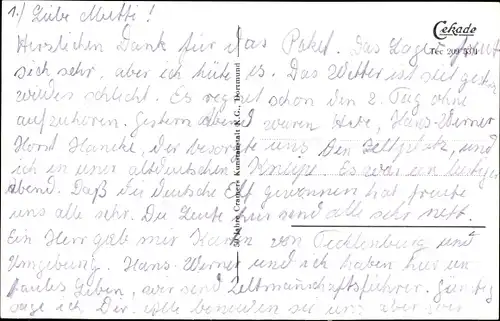 1.) Liebe Mutti!
Herzlichen Dank für das Paket. Das Lager freut
sich sehr, aber ich hüte es. Das Wetter ist seit gestern
wieder schlecht. Es regnet schon den 2. Tag ohne
aufzuhören. Gestern abend waren Hans-Werner
Horst Hancke, der besorgte uns den Zeltplatz, und
ich in einer altdeutschen Kneipe. Es war ein lustiger
Abend. Daß die deutsche Elf gewonnen hat freute
uns alle sehr. Die Leute hier sind alle sehr nett.
Ein Herr gab mir Karten von Tecklenburg und
Umgebung. Hans-Werner und ich haben hier ein
faules Leben, wir sind Zeltmannschaftsführer. Günstig
sage ich Dir. Alle beneiden sie uns aber wir
Cekade
TEC 209 3371
50 Jahre Cramers Kunstanstalt K.G., Dortmund